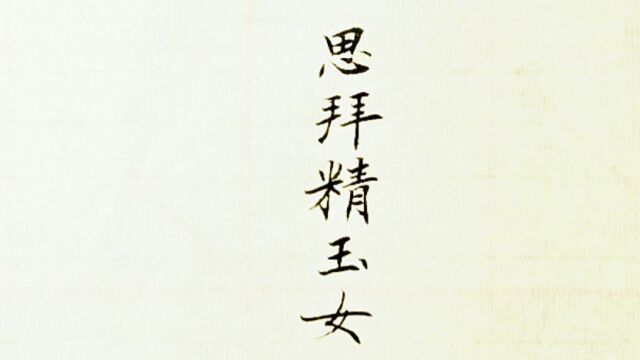 思拜精玉女